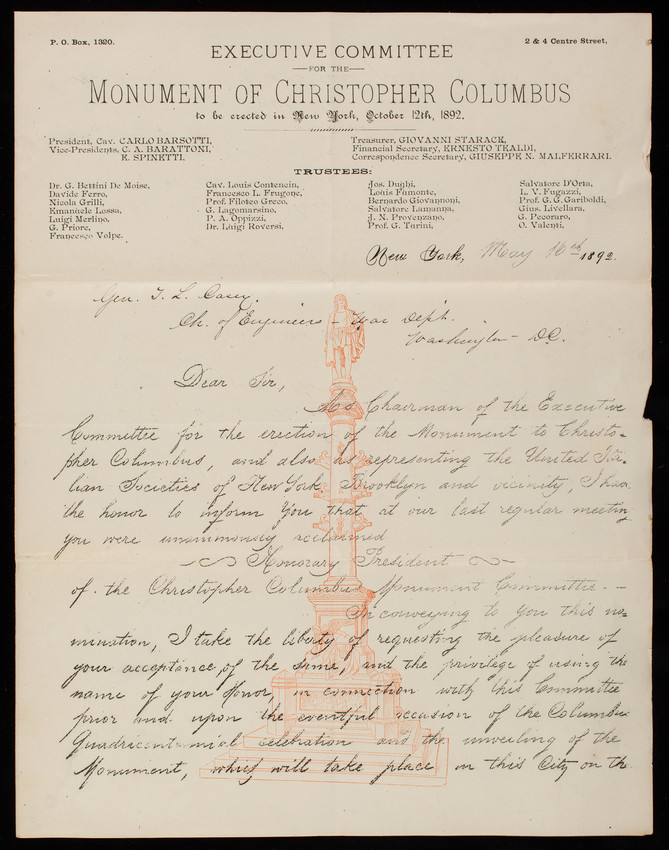 P. O. Box, 1320.
2 & 4 Centre Street.
EXECUTIVE COMMITTEE
FOR THE
MONUMENT OF CHRISTOPHER COLUMBUS
to be erected in New York, October 12th, 1892.
President, Cav. CARLO BARSOTTI,
Vice-Presidents, C. A. BARATTONI,
E. SPINETTI.
Treasurer, GIOVANNI STARACK,
Financial Secretary, ERNESTO TEALDI,
Correspondence Secretary, GIUSEPPE N. MALFERRARI.
TRUSTEES:
Dr. G. Bettini De Moise,
Davide Ferro,
Nicola Grilli,
Emanuele Lossa,
Luigi Merlino,
G. Priore,
Francesco Volpe.
Cav. Louis Contencin,
Francesco L. Frugone,
Prof. Filoteo Greco,
G. Lagomarsino,
P. A. Oppizzi,
Dr. Luigi Roversi,
Jos. Dughi,
Louis Fumonte,
Bernardo Giovannoni,
Salvatore Lamanna,
J. N. Provenzano,
Prof. G. Turini,
Salvatore D'Orta,
L. V. Fugazzi,
Prof. G. G. Gariboldi,
Gius. Livellara,
G. Pecoraro,
O. Valenti,
New York, May 16 1892
Gen. T. L. Casey.
Ch. of Engineers - War Dep't.
Washington - D.C.
Dear Sir,
As Chairman of the Executive
Committee for the erection of the Monument to Christo-
pher Columbus, and also as representing the United Ita-
lian Societies of New York Brooklyn and vicinity, I have
the honor to inform You that at our last regular meeting
you were unanimously acclaimed
Honorary President
of the Christopher Columbus Monument Committee. -
In conveying to you this no-
mination, I take the liberty of requesting the pleasure of
your acceptance of the same, and the privilege of using the
name of your Honor, in connection with this Committee
prior and upon the eventful occasion of the Columbus
Quadricentennial celebration and the unveiling of the
Monument, which will take place in this City on the